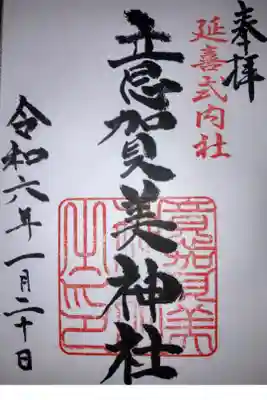 奉拝
延喜式内社
意賀美神社
令和六年一月二十日
意賀美
之印